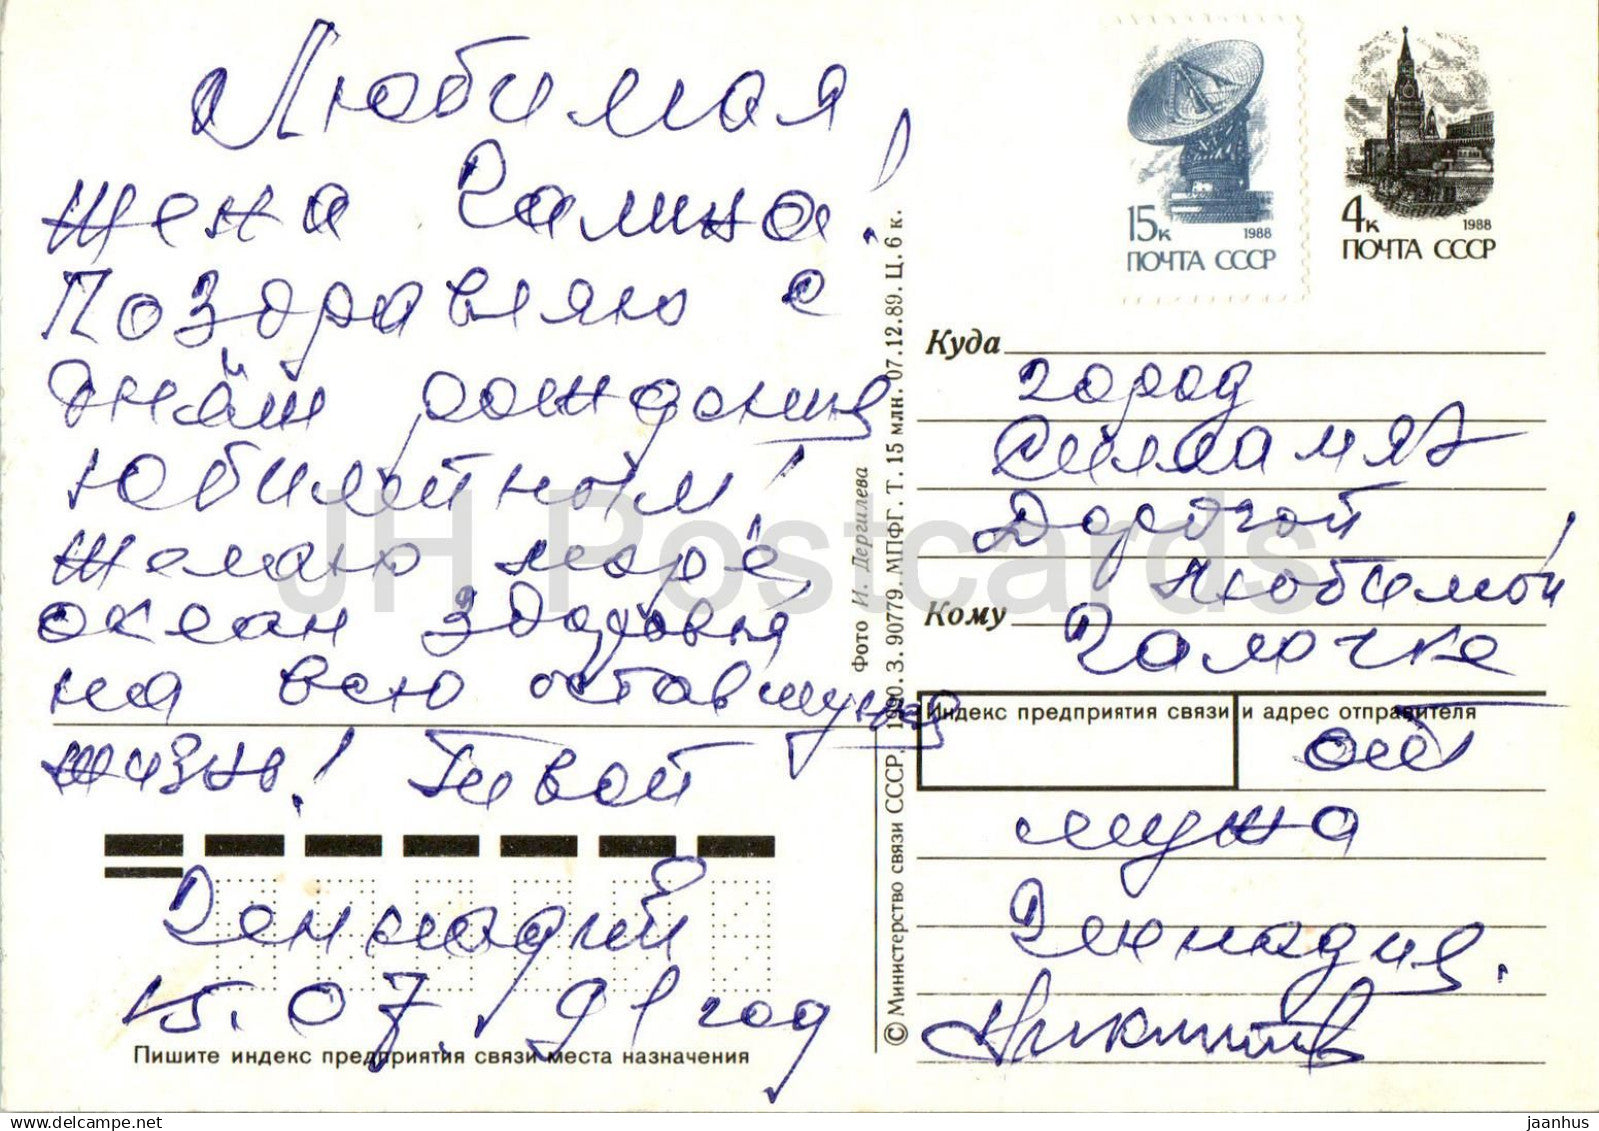 Любимая
жена Галина!
Поздравляю с
днём рождения
юбилейным!
Желаю море,
океан здоровья
на всю оставшуюся
жизнь! Твой
Геннадий
15.07.91 год
Пишите индекс предприятия связи места назначения
Фото И. Дергилева
© Министерство связи СССР, 1990. З. 90779. МПФГ. Т. 15 млн. 07.12.89. Ц. 6 к.
15к 1988
ПОЧТА СССР
4к 1988
ПОЧТА СССР
Куда
город
Силламяэ
Дорогой
любимой!
Кому Галочке
Индекс предприятия связи и адрес отправителя
от
мужа
Геннадия.
JH Postcards
jaanhus